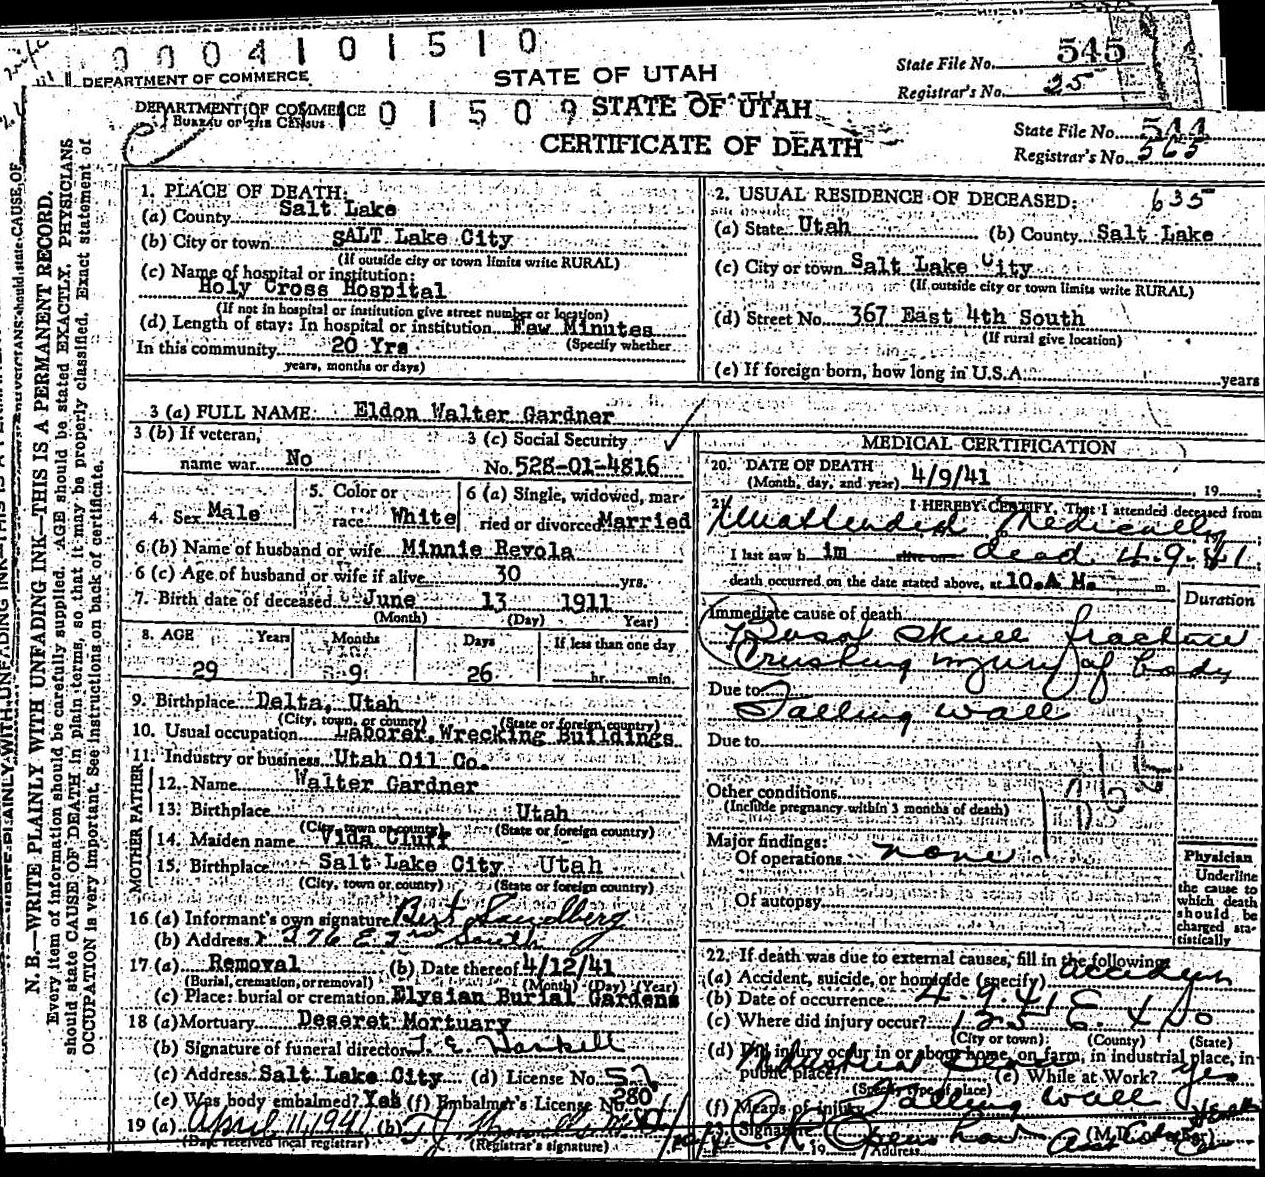 0004101510
DEPARTMENT OF COMMERCE
STATE OF UTAH
State File No. 545
Registrar's No. 25
DEPARTMENT OF COMMERCE
BUREAU OF THE CENSUS
101509
STATE OF UTAH
CERTIFICATE OF DEATH
State File No. 544
Registrar's No. 565
N. B.—WRITE PLAINLY WITH UNFADING INK—THIS IS A PERMANENT RECORD.
Every item of information should be carefully supplied. AGE should be stated EXACTLY. PHYSICIANS
should state CAUSE OF DEATH in plain terms, so that it may be properly classified. Exact statement of
OCCUPATION is very important. See instructions on back of certificate.
1. PLACE OF DEATH:
(a) County Salt Lake
(b) City or town SALT Lake City
(If outside city or town limits write RURAL)
(c) Name of hospital or institution:
Holy Cross Hospital
(If not in hospital or institution give street number or location)
(d) Length of stay: In hospital or institution Faw Minutes
(Specify whether
In this community 20 Yrs
years, months or days)
2. USUAL RESIDENCE OF DECEASED: 635
(a) State Utah (b) County Salt Lake
(c) City or town Salt Lake City
(If outside city or town limits write RURAL)
(d) Street No. 367 East 4th South
(If rural give location)
(e) If foreign born, how long in U.S.A. years
3 (a) FULL NAME Eldon Walter Gardner
3 (b) If veteran,
name war No
3 (c) Social Security
No. 528-01-4816
4. Sex Male
5. Color or
race White
6 (a) Single, widowed, mar-
ried or divorced Married
6 (b) Name of husband or wife Minnie Revola
6 (c) Age of husband or wife if alive 30 yrs.
7. Birth date of deceased June 13 1911
(Month) (Day) Year)
8. AGE Years Months Days If less than one day
29 9 26 hr. min.
9. Birthplace Delta, Utah
(City, town, or county) (State or foreign country)
10. Usual occupation Laborer, Wrecking Buildings
11. Industry or business Utah Oil Co.
FATHER
12. Name Walter Gardner
13. Birthplace Utah
(City, town or county) (State or foreign country)
MOTHER
14. Maiden name Vida Cluff
15. Birthplace Salt Lake City Utah
(City, town or county) (State or foreign country)
16 (a) Informant's own signature Bert Sandberg
(b) Address 376 E 2nd South
17 (a) Removal (b) Date thereof 4/12/41
(Burial, cremation, or removal) (Month) (Day) (Year)
(c) Place: burial or cremation Elysian Burial Gardens
18 (a) Mortuary Deseret Mortuary
(b) Signature of funeral director
(c) Address Salt Lake City (d) License No. 52
(e) Was body embalmed? Yes (f) Embalmer's License No. 280
19 (a) April 11, 1941 (b)
(Date received local registrar) (Registrar's signature)
MEDICAL CERTIFICATION
20. DATE OF DEATH
(Month, day, and year) 4/9/41, 19
21. I HEREBY CERTIFY, That I attended deceased from
Unattended Medically
I last saw h im alive on dead 4.9.41
death occurred on the date stated above, at 10. A M. m.
Duration
Immediate cause of death
Basal skull fracture
Crushing injury of body
Due to
Falling wall
Due to
Other conditions
(Include pregnancy within 3 months of death)
Major findings:
Of operations none
Of autopsy
Physician
Underline
the cause to
which death
should be
charged sta-
tistically
22. If death was due to external causes, fill in the following:
(a) Accident, suicide, or homicide (specify) accident
(b) Date of occurrence 4.9.41
(c) Where did injury occur? 125 E. 4 So
(City or town) (County) (State)
(d) Did injury occur in or about home, on farm, in industrial place, in
public place?
(Specify type of place) (e) While at Work? yes
(f) Means of injury Falling wall
23. Signature
19 Address